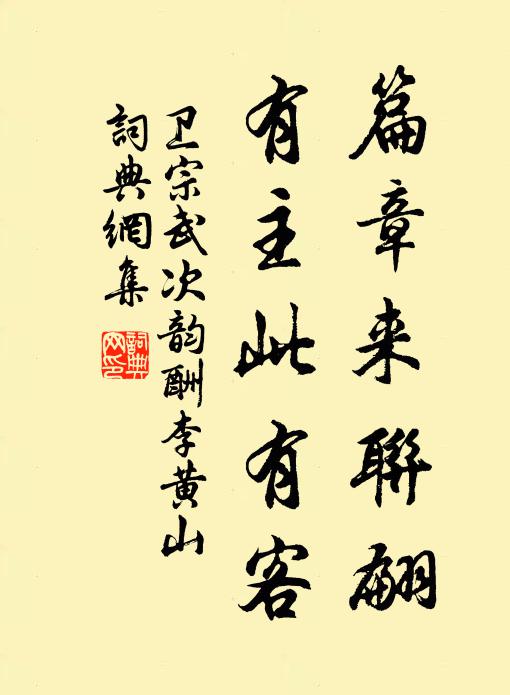 篇章来聯翩
有主此有客
卫宗武次韵酬李黄山
詞典網集
詞典
网印